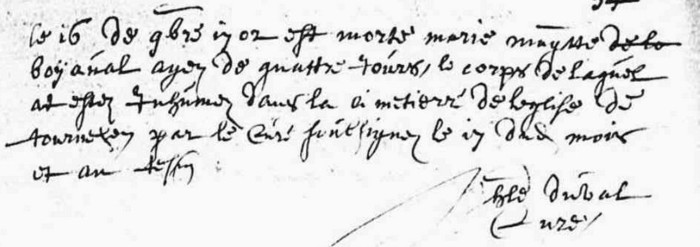 le 16 de 9bre 17 or est morte marie
boyaual agee de quattre Jours, le corps de laquel
at estez Inhumez dans la cimetiere de leglise de
tournehen par le Curé soubsignez le 17 dud mois
et an
duval
Curez